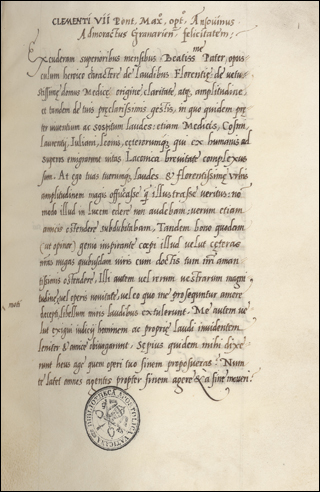 CLEMENTI VII Pont. Max. opt. Ansouinus
Admoractus Grauarien. felicitatem:
Excuderam superioribus mensibus Beatiss.me Pater, opus
culum heroico charactere de laudibus Florentię de uetu
stissimę domus Medicę origine, claritate, atq. amplitudine
et tandem de tuis pręclarissimis gestis, in quo quidem prę
ter inuentum ac sospitum laudes: etiam Medicis, Cosmi,
Laurentij, Iuliani, Leonis, cęterorumq. qui ex humanis ad
superos emigrarunt uitas Laconica breuitate complexus
sum. At ego tuas tuorumq. laudes & florentissimę urbis
amplitudinem magis offuscasse q̃ illustrasse ueritus: no
modo illud in lucem edere non audebam: uerum etiam
amicis ostendere subdubitabam, Tandem bono quodam
(ut opinor) genio inspirante cœpi illud uelut cęteras
meas nugas quibusdam uiris cum doctis tum aman
tissimis ostendere. Illi autem uel rerum uestrarum magni
tudine, uel operis nouitate, uel eo quo me prosequuntur amore
libellum miris laudibus extulerunt. Me autem ue
lut exigui iudicij hominem ac proprię laudi inuidentem
leniter & amicè obiurgarunt. Sępius quidem mihi dixe
runt heus age quem operi tuo finem proposueras? Num
te latet omnes agentes propter finem agere & a fine moueri.
noti
BIBLIOTHECA APOSTOLICA VATICANA